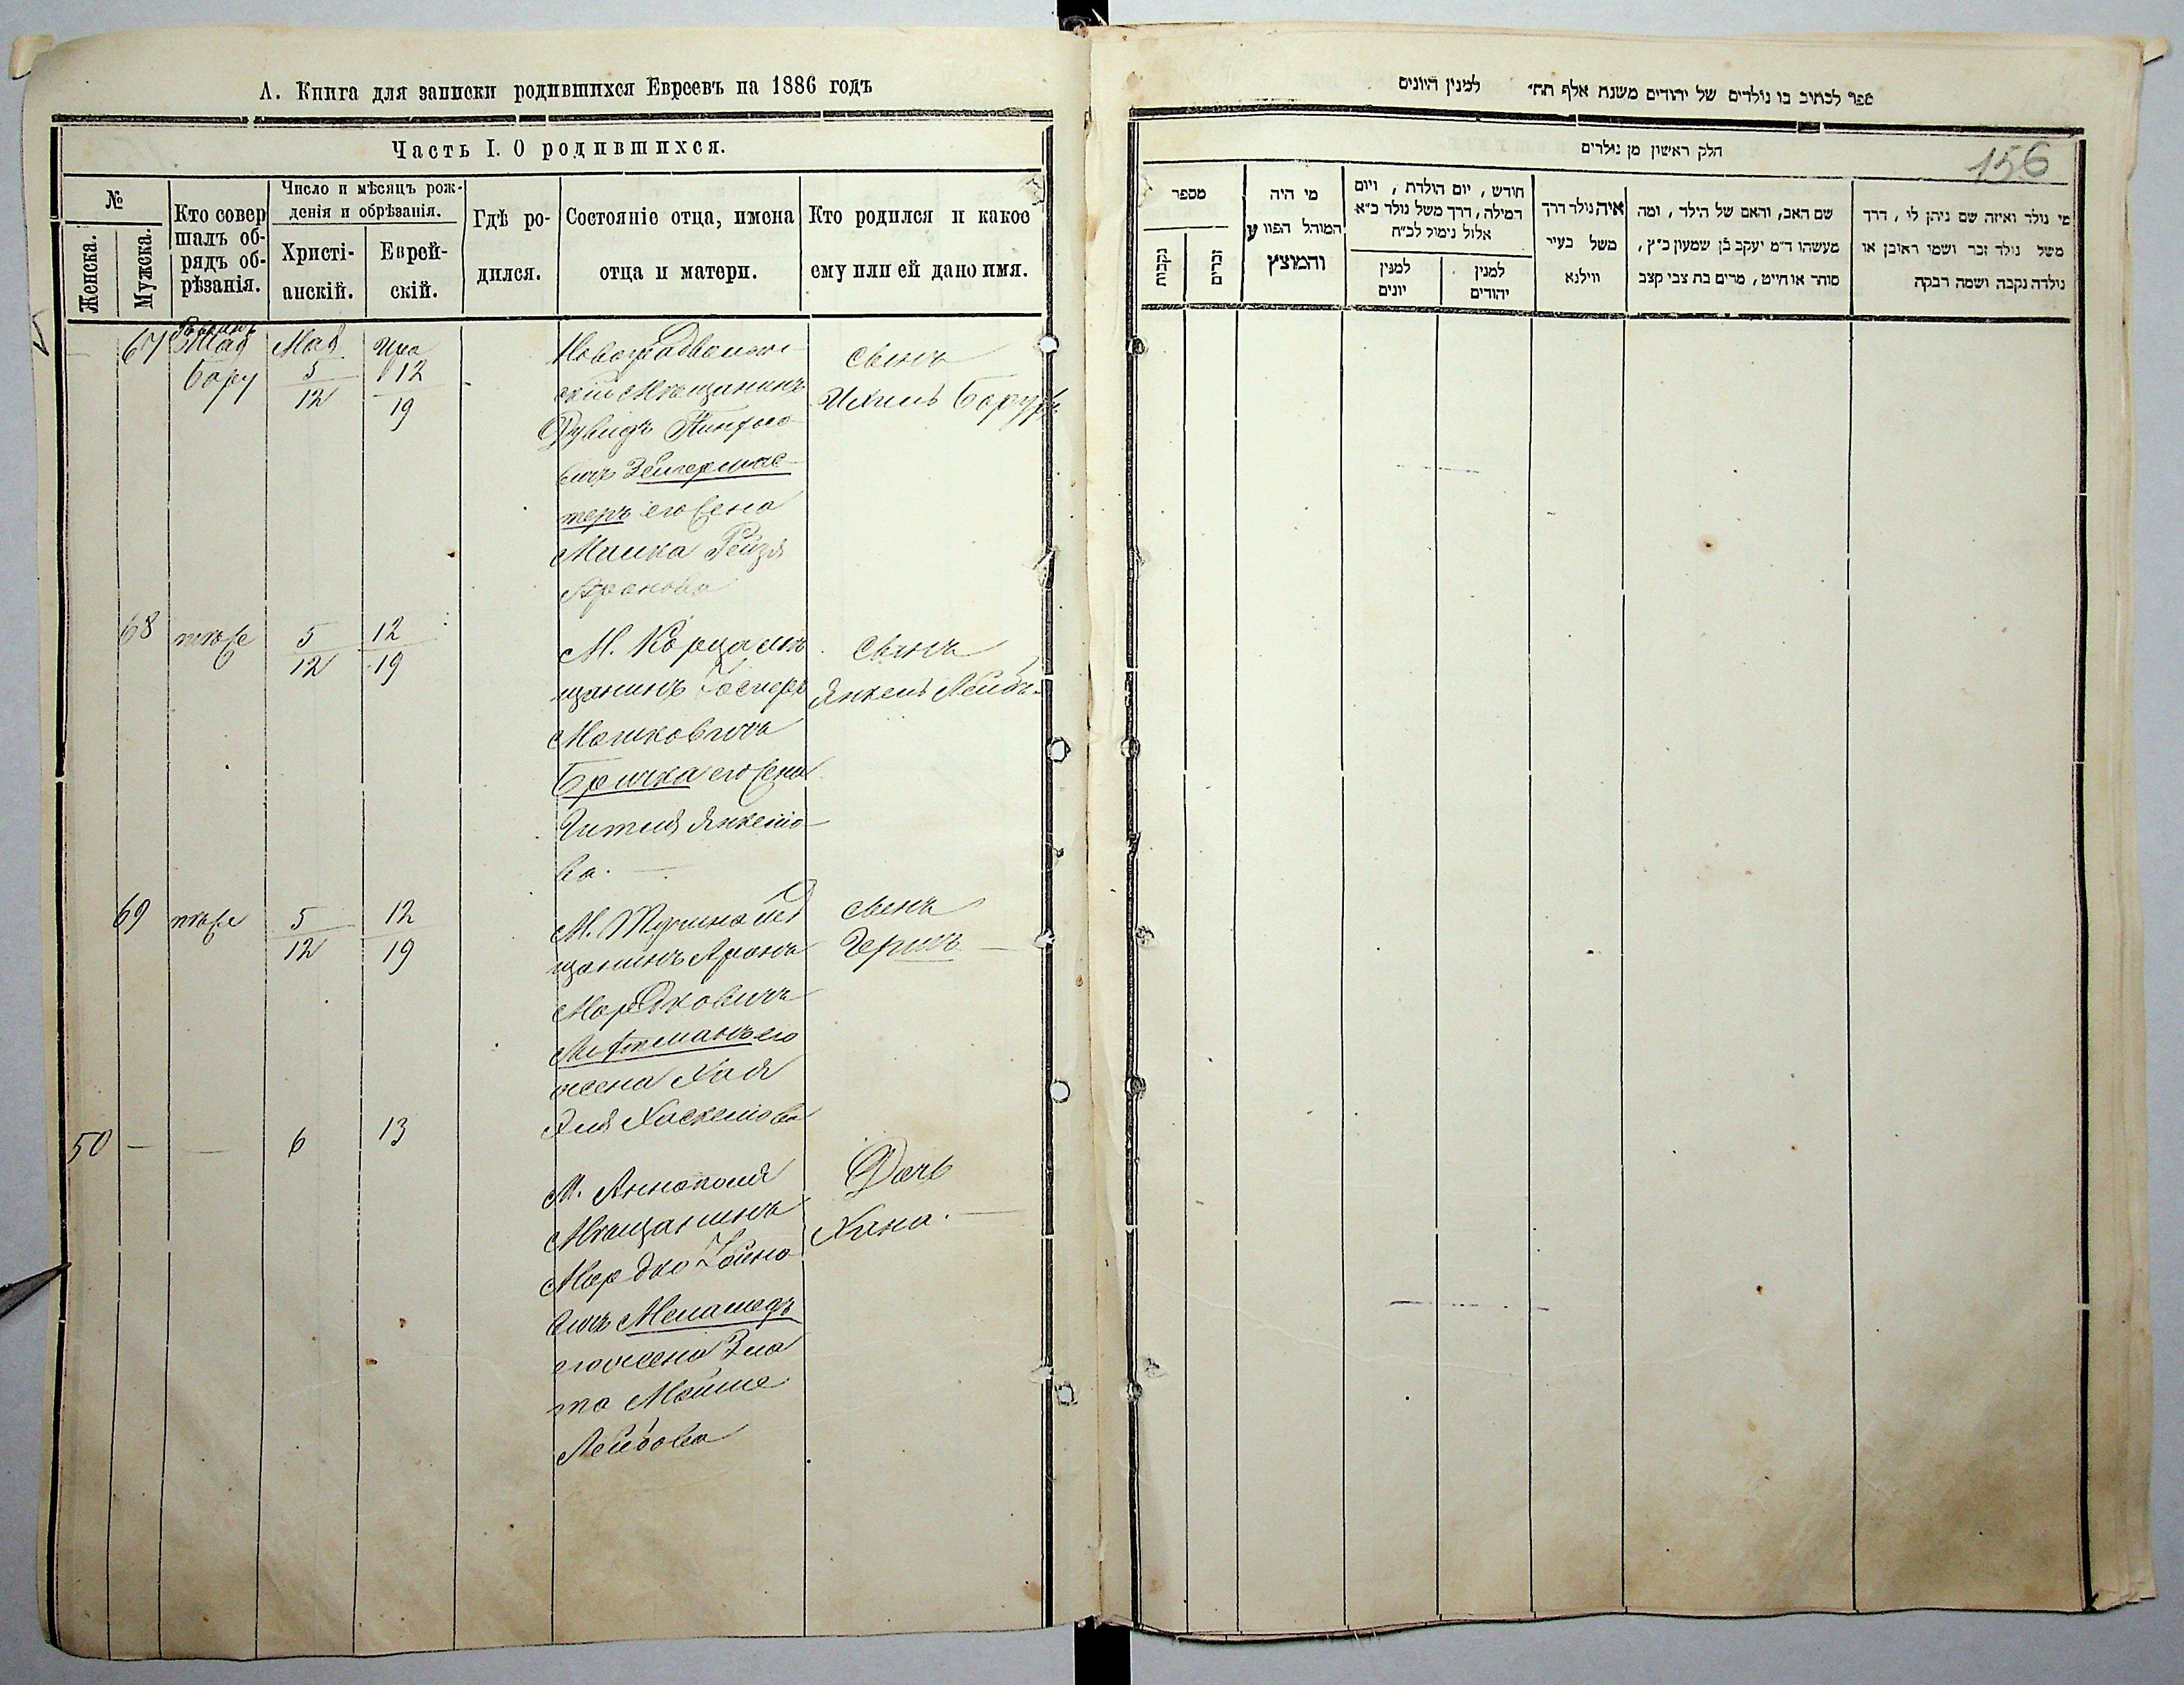 А. Книга для записки родившихся Евреевъ на 1886 годъ
Часть I. О родившихся.
№
Женска.
Мужска.
Кто совер
шалъ об-
рядъ об-
рѣзанія.
Число и мѣсяцъ рож-
денія и обрѣзанія.
Христі-
анскій.
Еврей-
скій.
Гдѣ ро-
дился.
Состояніе отца, имена
отца и матери.
Кто родился и какое
ему или ей дано имя.
67
Бору
Мая
5
12
Ира
12
19
Новоградволын-
скій Мѣщанинъ
Дувидъ Пинхасо-
вичъ Зейгермае-
теръ его жена
Малка Рейзя
Аронова
сынъ
Ихиль Борухъ
68
тоже
5
12
12
19
М. Корца мѣ
щанинъ Іосифъ
Мошковичъ
его жена
Гитля Янкелю-
ва.
сынъ
Янкель Лейбъ.
69
тоже
5
12
12
19
М. Тучина мѣ
щанинъ Аронъ
Мордковичъ
его
жена Хая
Хаскелюва
сынъ
Герить
50
—
—
6
13
М. Аннополя
Мѣщанинъ
Мордко Хаимо-
вичъ Меламедъ
его жена Зла
та Мойше
Лейбова
Дочь
Хана.
ספר לכתוב בו נולדים של יהודים משנת אלף תת״ למנין היונים
חלק ראשון מן נולדים
156
מספר
נקבות
זכרים
מי היה
המוהל הפורע
והמוצץ
חודש, יום הולדת, ויום
המילה, דרך משל נולד כ״א
אלול נימול לכ״ח
למנין
יונים
למנין
יהודים
איה נולד דרך
משל בעיר
ווילנא
שם האב, והאם של הילד, ומה
מעשהו ד״מ יעקב בן שמעון כ״ץ,
סוחר או חייט, מרים בת צבי קצב
מי נולד ואיזה שם ניתן לו, דרך
משל נולד זכר ושמו ראובן או
נולדה נקבה ושמה רבקה